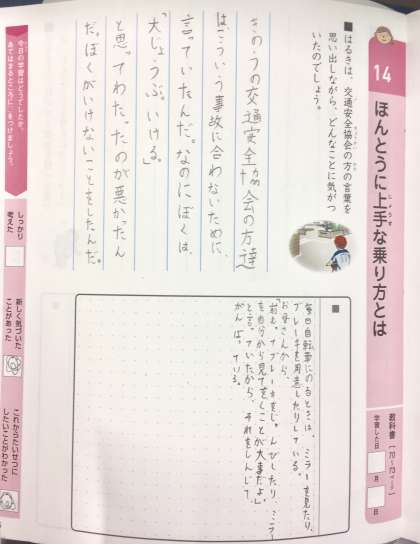 14
ほんとうに上手な乗り方とは
じょうず
教科書[72〜75ページ]
学習した日
月
日
■はるきは、交通安全協会の方の言葉を
思い出しながら、どんなことに気がつ
いたのでしょう。
きのうの交通安全協会の方達
は、こういう事故に合わないために、
言っていたんだ。なのにぼくは、
「大じょうぶ。いける。」
と思ってわたったのが悪かったん
だ。ぼくがいけないことをしたんだ。
毎日自転車にのるときは、ミラーを見たり、
ブレーキを用意したりしている。
お母さんから、
を自分から見ておくことが大事だよ。」
と言っていたから、それをしんじて、
がんばっている。
今日の学習はどうでしたか。
あてはまるところに、をつけましょう。
しっかり
考えた
新しく気づいた
ことがあった
これからたいせつに
したいことがわかった